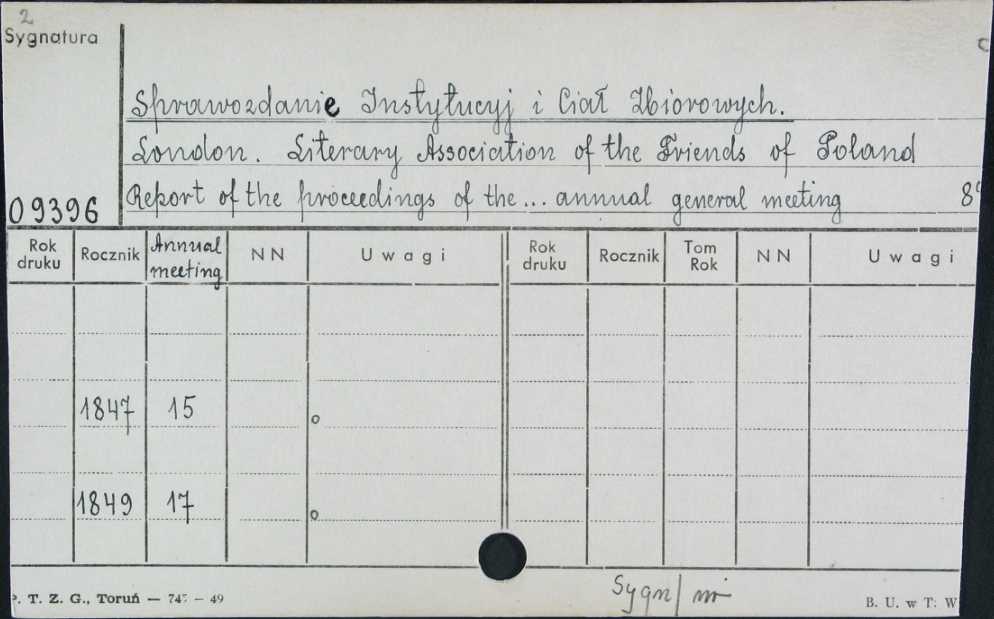 2
Sygnatura
C
Sprawozdanie Instytucyj i Ciał Zbiorowych.
London. Literary Association of the Friends of Poland
09396
Report of the proceedings of the... annual general meeting 8°
Rok druku Rocznik Annual meeting NN Uwagi Rok druku Rocznik Tom Rok NN Uwagi
1847 15
1849 17
P. T. Z. G., Toruń — 747 — 49
Sygn/
B. U. w T: W